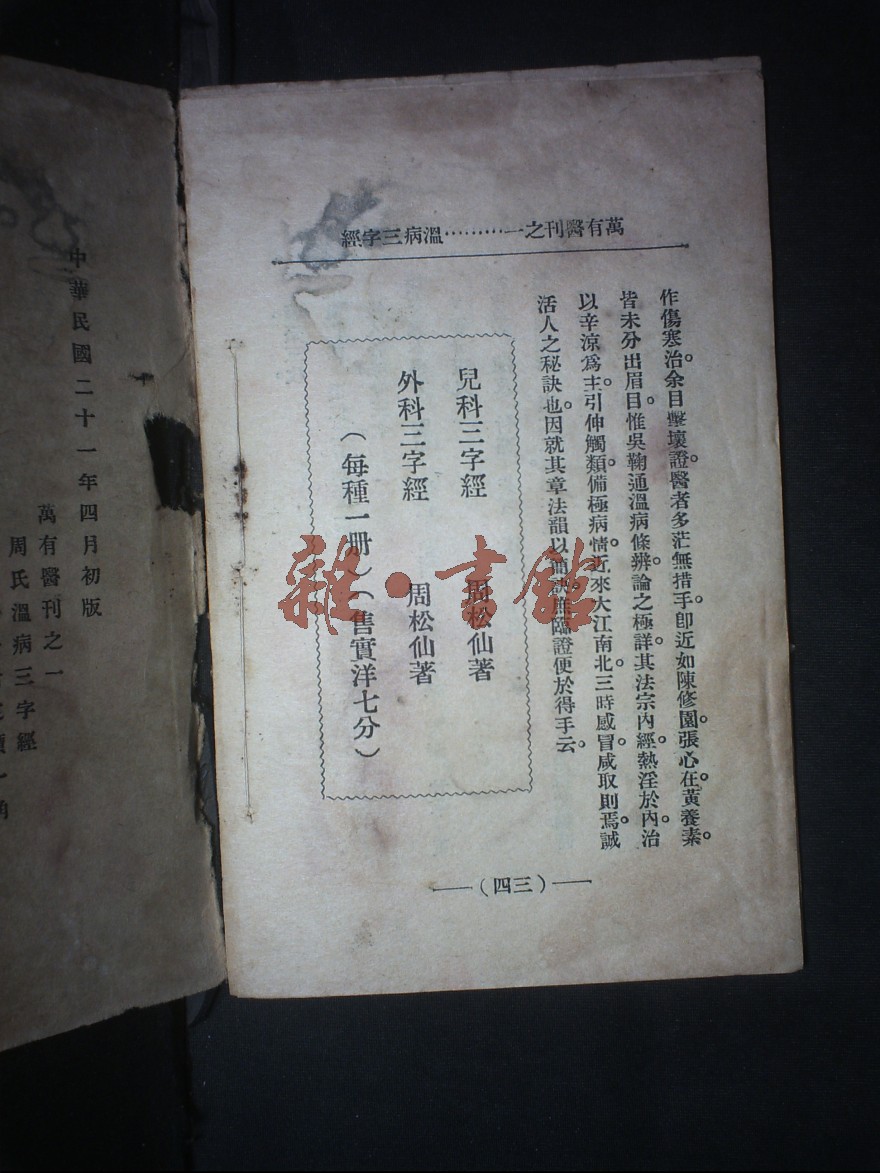 萬有醫刊之一………溫病三字經
作傷寒治。余目擊壞證。醫者多茫無措手。卽近如陳修園。張心在。黃養素。
皆未分出眉目。惟吳鞠通溫病條辨。論之極詳。其法宗內經。熱淫於內。治
以辛涼爲主。引伸觸類。備極病情。近來大江南北。三時感冒。咸取則焉。誠
活人之秘訣也。因就其章法韻以簡訣。庶臨證便於得手云。
兒科三字經 周松仙著
外科三字經 周松仙著
(每種一册)(售實洋七分)
—(四三)—
中華民國二十一年四月初版
萬有醫刊之一
周氏溫病三字經
雜·書館